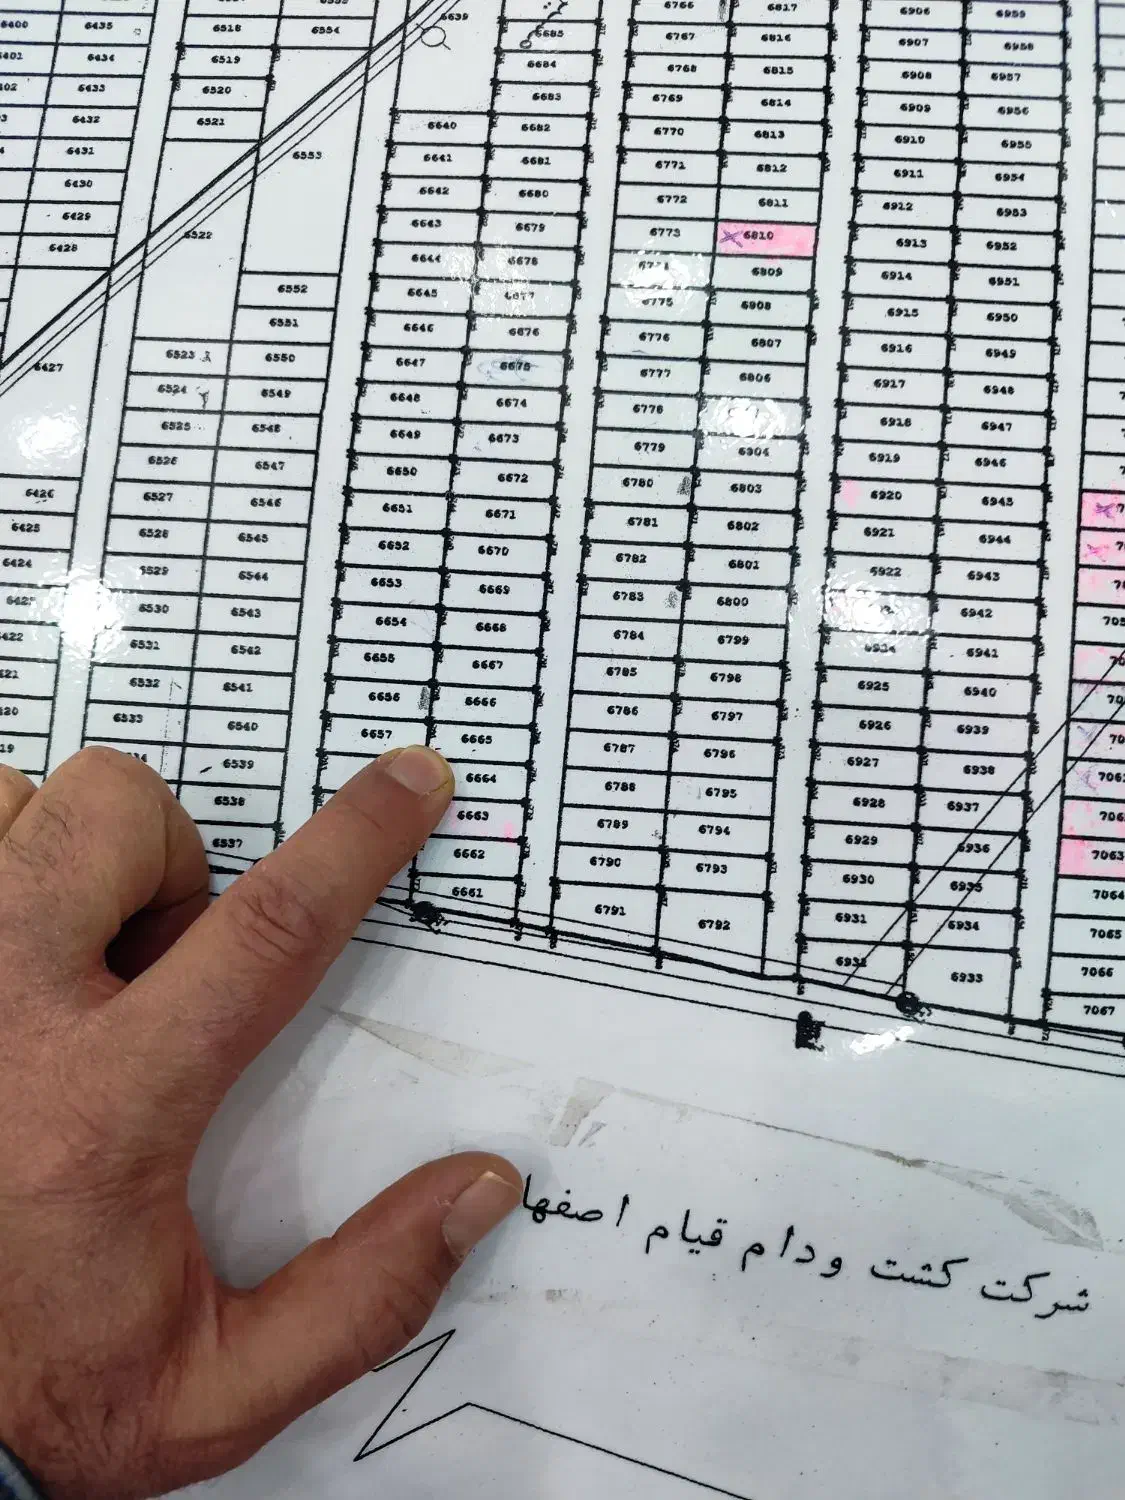 6400 6435 6518 6554 6639 6685 6766 6817 6906 6959
6434 6519 6684 6767 6816 6907 6958
6433 6520 6683 6768 6815 6908 6957
6432 6521 6640 6682 6769 6814 6909 6956
6431 6553 6641 6681 6770 6813 6910 6955
6430 6642 6680 6771 6812 6911 6954
6429 6522 6643 6679 6772 6811 6912 6953
6428 6644 6678 6773 6810 6913 6952
6552 6645 6677 6809 6914 6951
6551 6646 6676 6775 6908 6915 6950
6427 6523 6550 6647 6675 6776 6807 6916 6949
6524 6549 6648 6674 6777 6806 6917 6948
6525 6548 6649 6673 6778 6918 6947
6526 6547 6650 6672 6779 6804 6919 6946
6426 6527 6546 6651 6671 6780 6803 6920 6945
6425 6528 6545 6652 6670 6781 6802 6921 6944
6424 6529 6544 6653 6669 6782 6801 6922 6943
6530 6543 6654 6668 6783 6800 6942
6531 6542 6655 6667 6784 6799 6941
6532 6541 6656 6666 6785 6798 6925 6940
6533 6540 6657 6665 6786 6797 6926 6939
6539 6664 6787 6796 6927 6938
6538 6663 6788 6795 6928 6937
6537 6662 6789 6794 6929 6936 7063
6661 6790 6793 6930 6935 7064
6791 6792 6931 6934 7065
6933 7066
7067
شرکت کشت ودام قیام اصفها